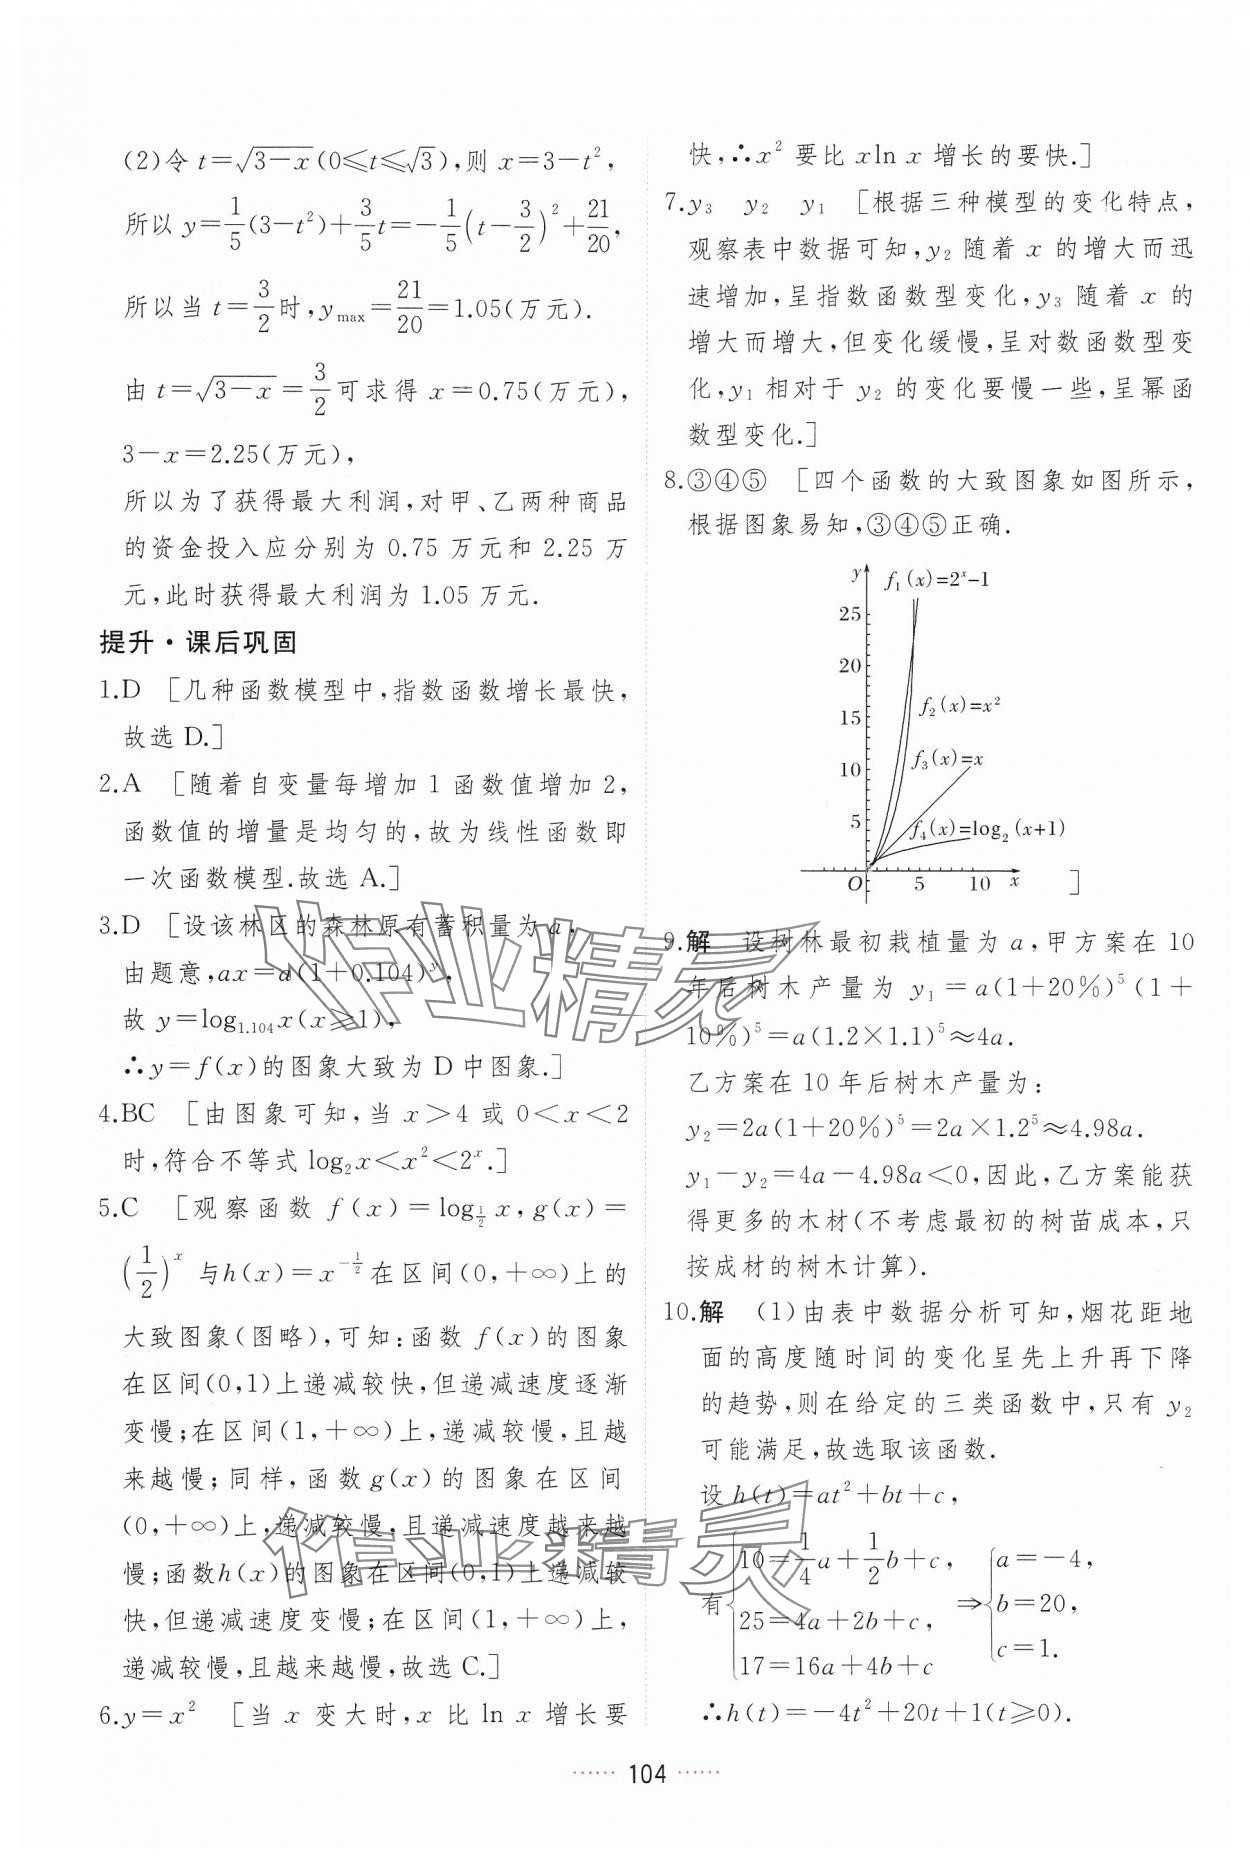 (2)令 t=√3-x(0≤t≤√3),则 x=3-t²,
所以 y=1/5(3-t²)+3/5t=-1/5(t-3/2)²+21/20,
所以当 t=3/2时,y_max=21/20=1.05(万元).
由 t=√3-x=3/2可求得 x=0.75(万元),
3-x=2.25(万元),
所以为了获得最大利润,对甲、乙两种商品
的资金投入应分别为 0.75 万元和 2.25 万
元,此时获得最大利润为 1.05 万元.
提升·课后巩固
1.D [几种函数模型中,指数函数增长最快,
故选 D.]
2.A [随着自变量每增加 1 函数值增加 2,
函数值的增量是均匀的,故为线性函数即
一次函数模型.故选 A.]
3.D [设该林区的森林原有蓄积量为 a,
由题意,ax=a(1+0.104)^y,
故 y=log₁.₁₀₄x(x≥1),
∴y=f(x)的图象大致为 D 中图象.]
4.BC [由图象可知,当 x>4 或 0<x<2
时,符合不等式 log₂x<x²<2ˣ.]
5.C [观察函数 f(x)=log_{1/2} x,g(x)=
(1/2)ˣ 与h(x)=x^{-1/2}在区间(0,+∞)上的
大致图象(图略),可知:函数 f(x)的图象
在区间(0,1)上递减较快,但递减速度逐渐
变慢;在区间(1,+∞)上,递减较慢,且越
来越慢;同样,函数g(x)的图象在区间
(0,+∞)上,递减较慢,且递减速度越来越
慢;函数h(x)的图象在区间(0,1)上递减较
快,但递减速度变慢;在区间(1,+∞)上,
递减较慢,且越来越慢,故选 C.]
6.y=x² [当 x 变大时,x 比 ln x 增长要
快,∴x² 要比 xln x 增长的要快.]
7.y₃ y₂ y₁ [根据三种模型的变化特点,
观察表中数据可知,y₂ 随着 x 的增大而迅
速增加,呈指数函数型变化,y₃ 随着 x 的
增大而增大,但变化缓慢,呈对数函数型变
化,y₁ 相对于 y₂ 的变化要慢一些,呈幂函
数型变化.]
8.③④⑤ [四个函数的大致图象如图所示,
根据图象易知,③④⑤正确.
y f₁(x)=2ˣ-1
25
20
f₂(x)=x²
15
f₃(x)=x
10
5 f₄(x)=log₂(x+1)
O 5 10 x ]
9.解 设树林最初栽植量为 a,甲方案在 10
年后树木产量为 y₁=a(1+20%)⁵(1+
10%)⁵=a(1.2×1.1)⁵≈4a.
乙方案在 10 年后树木产量为:
y₂=2a(1+20%)⁵=2a×1.2⁵≈4.98a.
y₁-y₂=4a-4.98a<0,因此,乙方案能获
得更多的木材(不考虑最初的树苗成本,只
按成材的树木计算).
10.解 (1)由表中数据分析可知,烟花距地
面的高度随时间的变化呈先上升再下降
的趋势,则在给定的三类函数中,只有 y₂
可能满足,故选取该函数.
设 h(t)=at²+bt+c,
有{10=1/4a+1/2b+c, ⇒{a=-4,
25=4a+2b+c, b=20,
17=16a+4b+c c=1.
∴h(t)=-4t²+20t+1(t≥0).
104
作业精灵
作业精灵